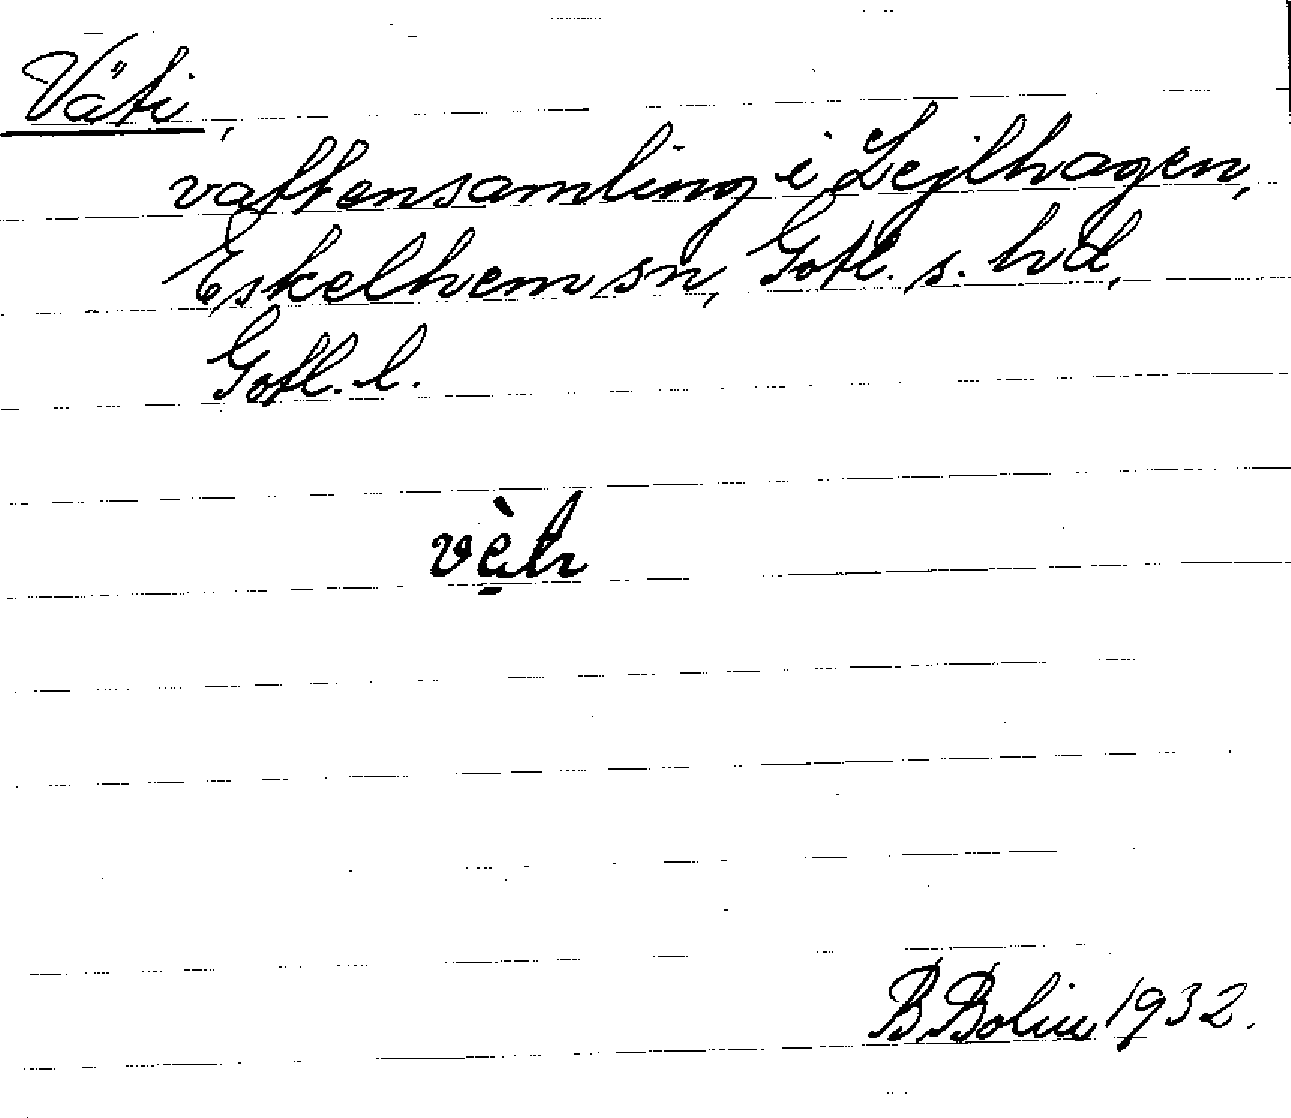 Väti,
vattensamling i Lejlhagen,
Eskelhem sn, Gotl. s. hd,
Gotl. l.
B. Bolin 1932.